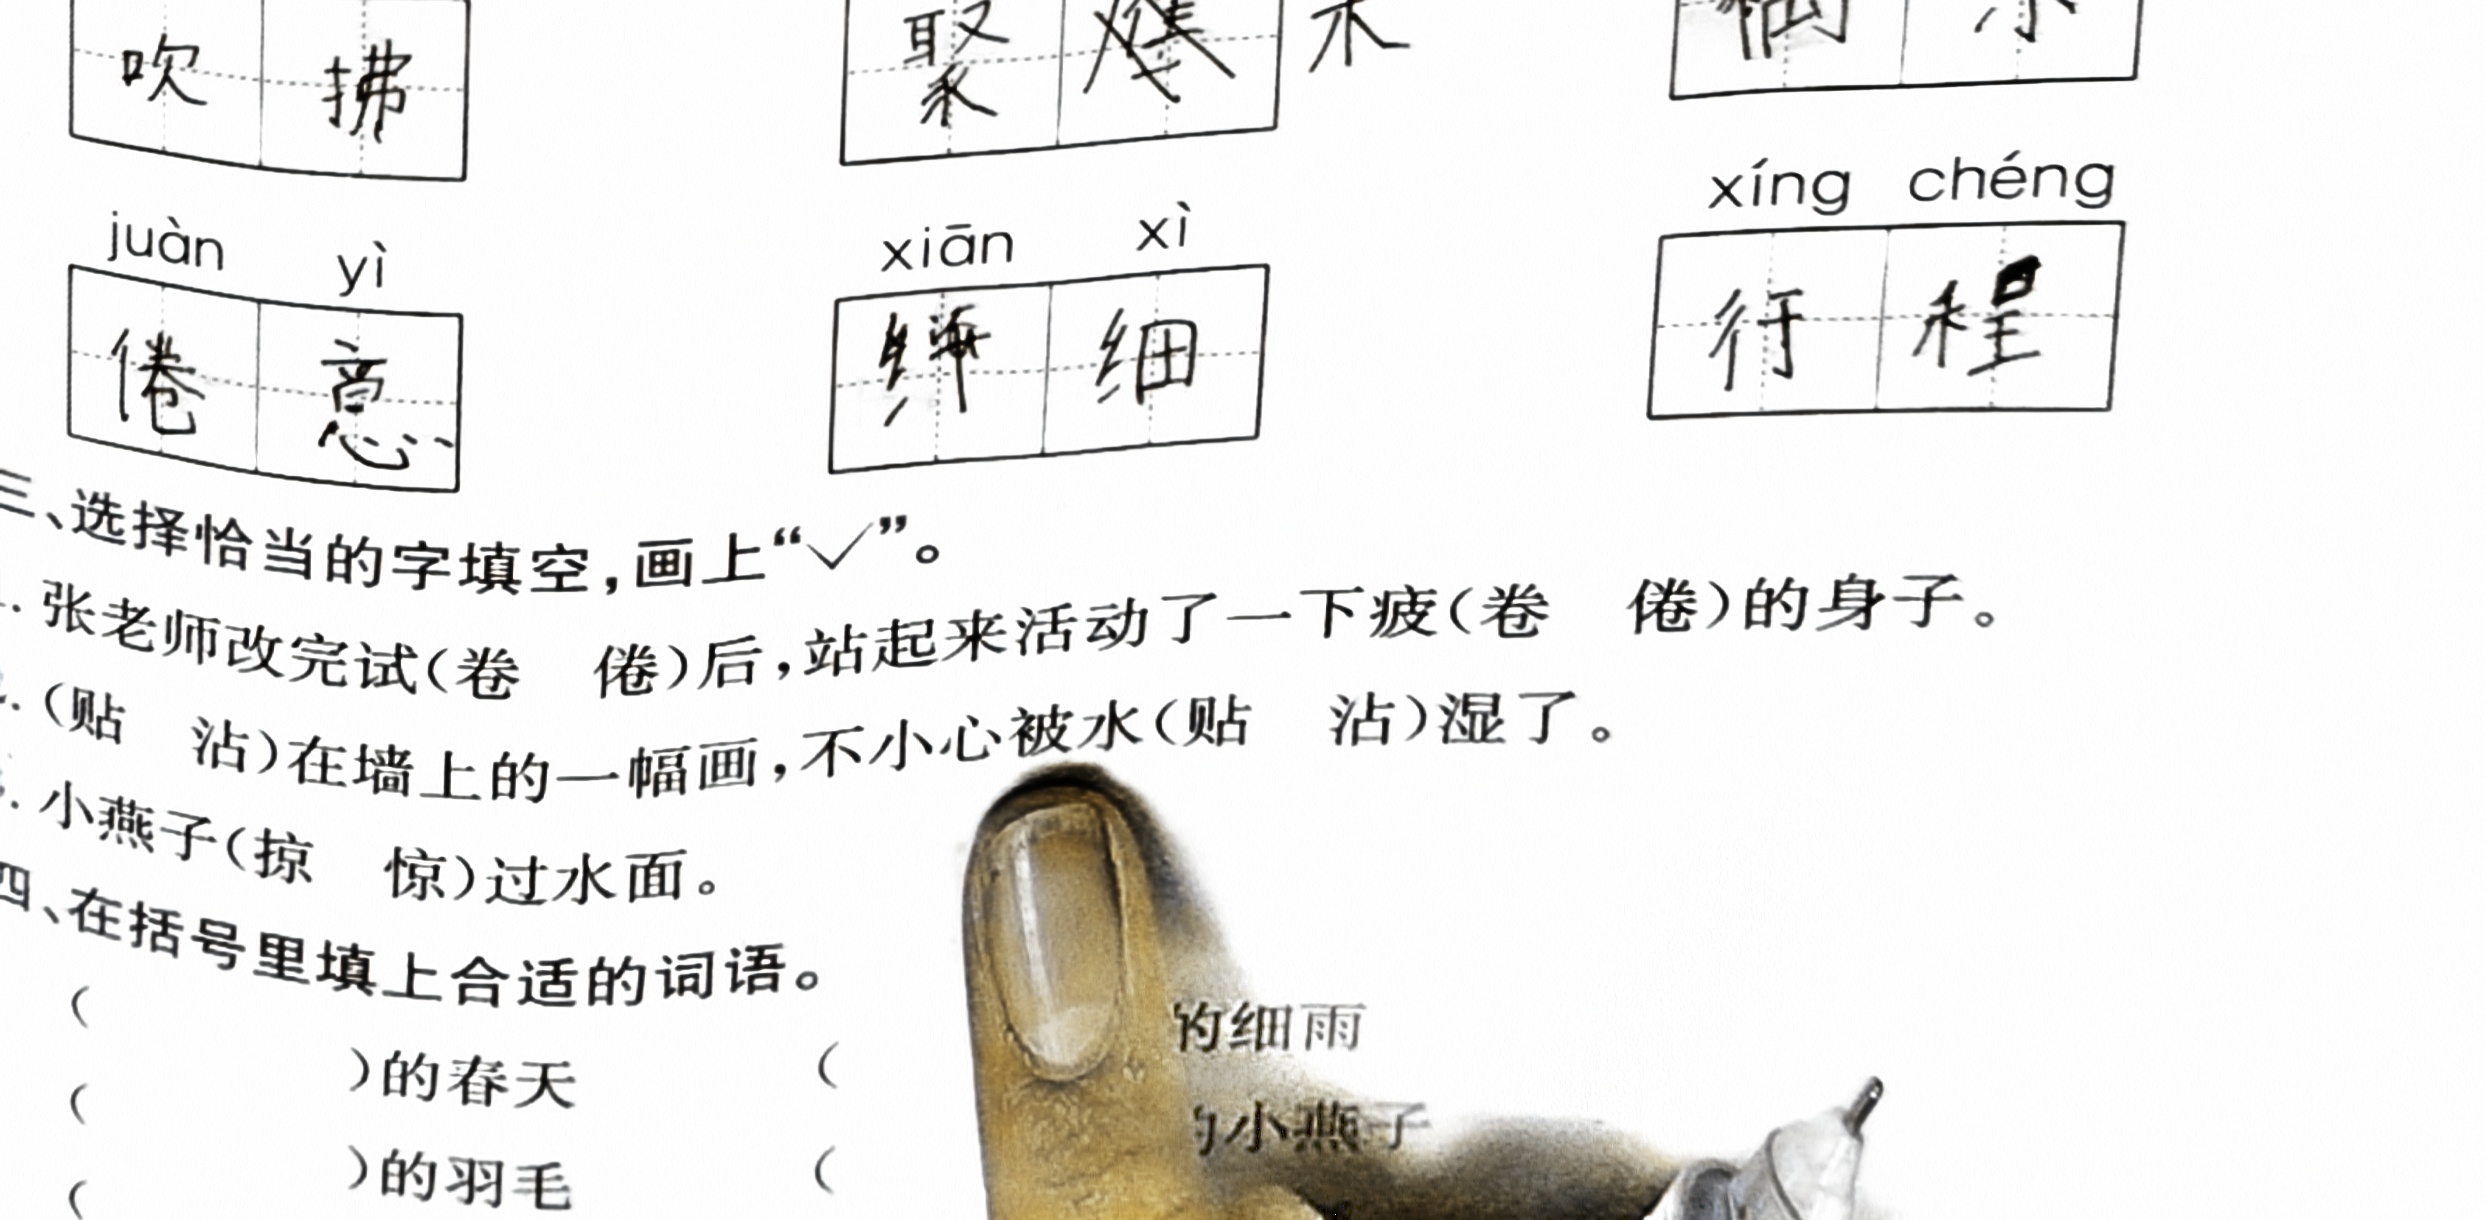 吹拂 聚
juàn yì xiān xì xíng chéng
倦意 细 行程
三、选择恰当的字填空,画上“√”。
1. 张老师改完试(卷 倦)后,站起来活动了一下疲(卷 倦)的身子。
2. (贴 沾)在墙上的一幅画,不小心被水(贴 沾)湿了。
3. 小燕子(掠 惊)过水面。
四、在括号里填上合适的词语。
( )的春天 ( 的细雨
( )的羽毛 ( 的小燕子
(